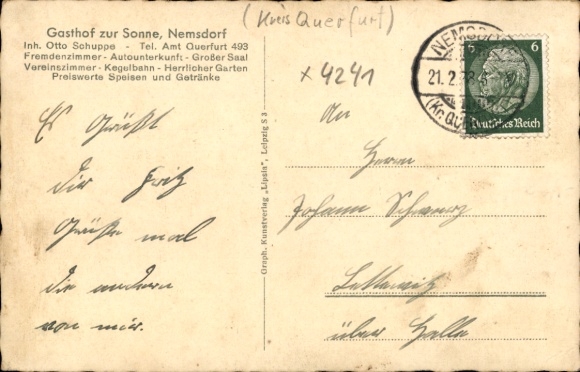 Gasthof zur Sonne, Nemsdorf
Inh. Otto Schuppe - Tel. Amt Querfurt 493
Fremdenzimmer - Autounterkunft - Großer Saal
Vereinszimmer - Kegelbahn - Herrlicher Garten
Preiswerte Speisen und Getränke
(Kreis Querfurt)
x 4241
NEMSDORF
21.2.38
(Kr. QU
6
Deutsches Reich
Es Grüßt
Dir Fritz
Grüße mal
die andern
von mir.
Graph. Kunstverlag „Lipsia", Leipzig S 3
An
Herrn
Johann Schwarz
Lettewitz
über Halle